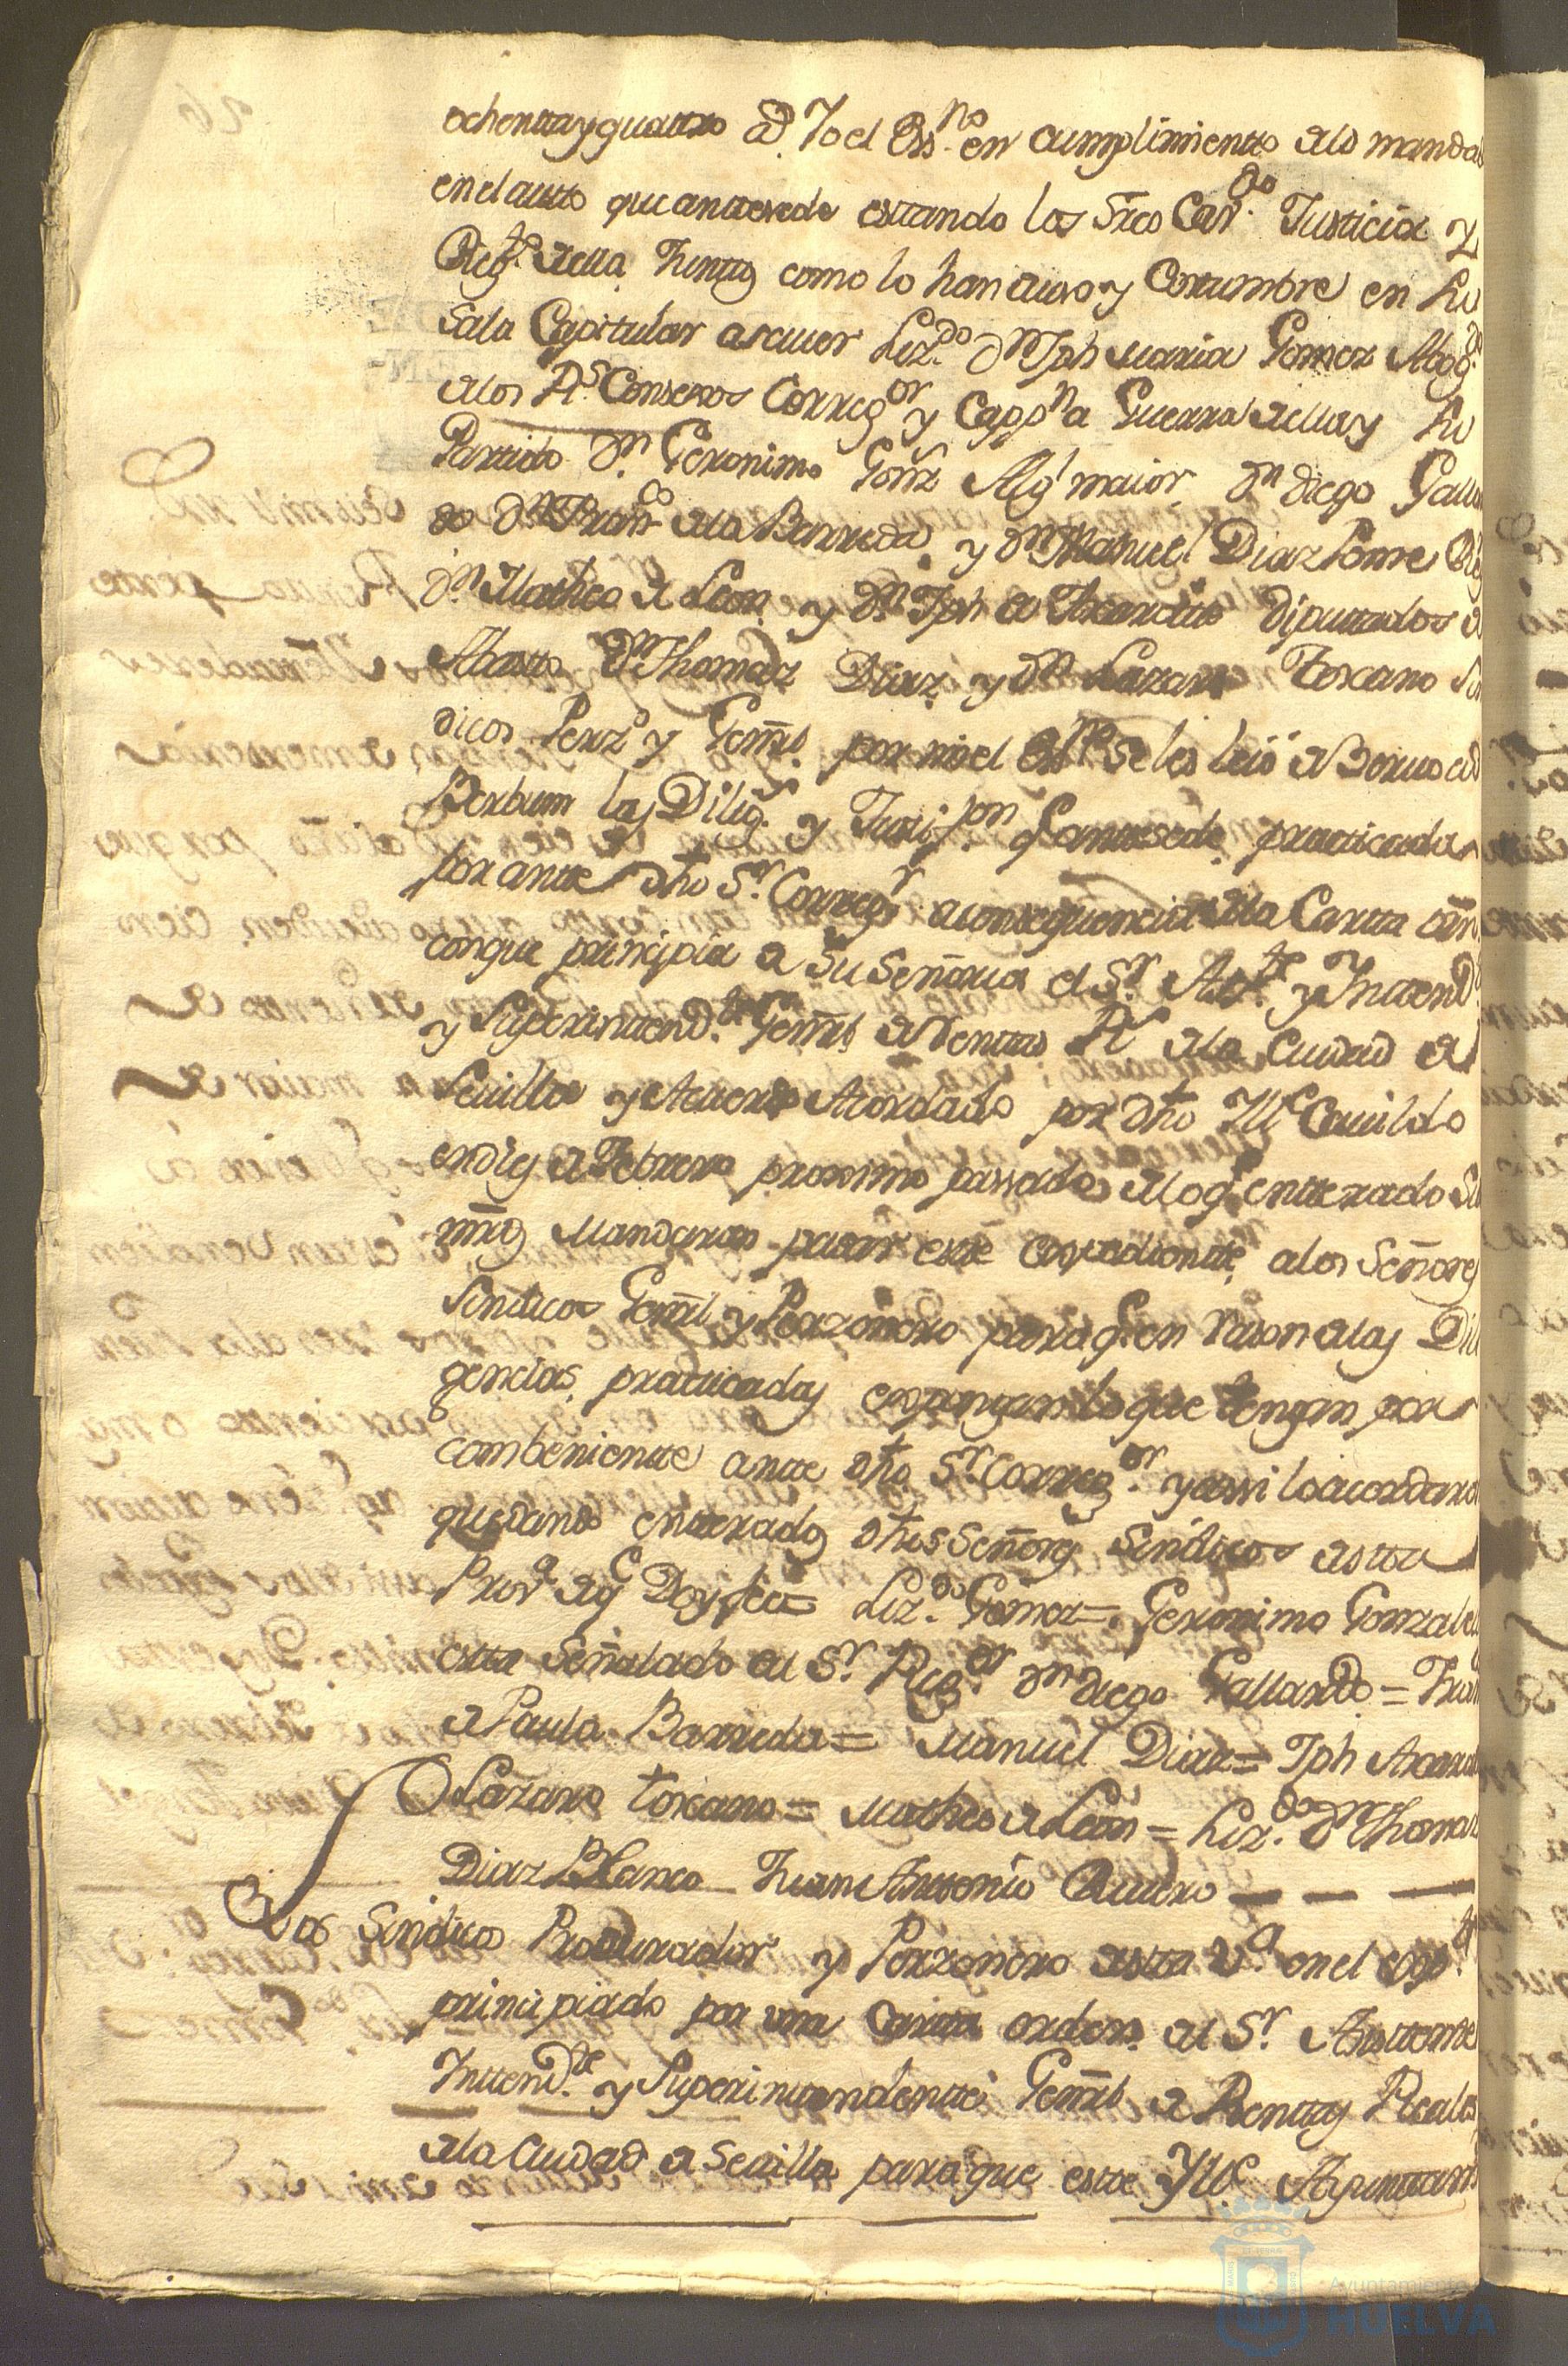 ochenttayquattro ad. Yo el Ess.no en cumplimientto alo manda
en el autto que anttesede esttando los Sres Cav.do Justicia y
Reg.to della Junttos como lo han de uso y Costtumbre en su
Sala Capitular a saver Liz.do dn Jph Maria Gomez Abog.do
alos Rs Consexos Correg.or y Capp.n a Guerra della y su
Partido Dn. Geronimo Gonz Alg.l maior Dn diego Galla
do Dn Fran.co dela Barreda, y Dn Manuel Diaz Ponze Reg
Dn. Matheo de Leon y Dn Jph de diputtados de
Abastto Dn Thomaz Diaz y Dn Lazaro Toscano Sin
dicos Perz.o y Gemrl. por mi el Ess.no se les leió de Bervo ad
Berbum las Dilig.s y Justif.pon q. anttesede practicadas
por antte dho Sr. Correg.r a consequencia dela Cartta orn
conque principia de Su Señoria el Sr. Asst.te y Inttend.te
y Superinttend.te Gemrl de Renttas Rs dela Ciudad de
Sevilla y Acuerdo Acordado por dho Ille Cavildo
en dies de Febrero proximo passado, delo q. entterados Su
mrds Mandaron pasar estte expedientte alos Señores
Sindicos Gemrl y Perzonero para q. en rason alas Dili
gencias practticadas expongan lo que tengan por
combenientte antte dho Sr. Correg.or y assi lo acordaron
quedando entterados dhos Señores Sindicos de estta
Prov.a de q Doy fee= Liz.do Gomez= Geronimo Gonzales
estta Señalado del Sr. Reg.or Dn diego Gallardo= Fran
de Paula Barreda= Manuel Diaz= Jph
Lazaro toscano= Matheo de Leon= Liz.do Dn Thomaz
Diaz Blanco Juan Anttonio
Los Sindico Procurador y Perzonero de estta V.a en el exp.te
principiado por una Cartta orden del Sr. Asisttente
Inttend.te y Superinttendentte Gemrl de Renttas Reales
dela Ciudad de Sevilla para que estte Ylle Ayunttam
Ayuntamiento
HUELVA